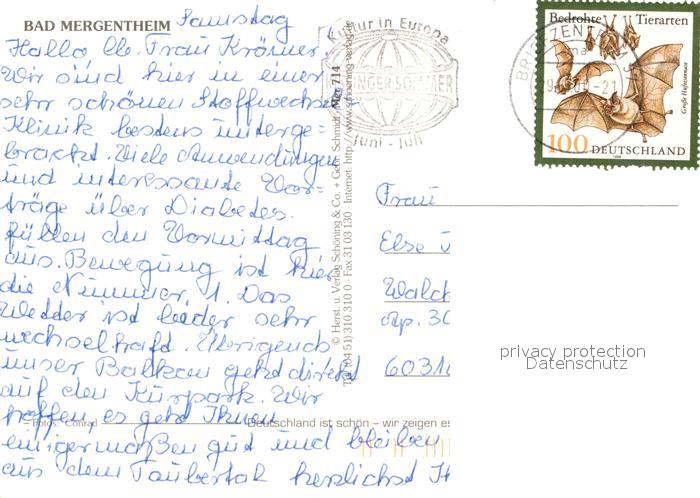 BAD MERGENTHEIM
Samstag
Hallo lb. Frau Krämer,
wir sind hier in einer
sehr schönen Stoffwechsel
Klinik bestens unterge=
bracht. Viele Anwendungen
und interessante Vor=
träge über Diabetes.
füllen den Vormittag
aus. Bewegung ist hier
die Nummer 1. Das
Wetter ist leider sehr
wechselhaft. Übrigends
unser Balkon geht direkt
auf den Kurpark. Wir
hoffen, es geht Ihnen
einigermaßen gut und bleiben
aus dem Taubertal herzlichst
Fotos: Conrad
Deutschland ist schön – wir zeigen es
© Herst. u. Verlag Schöning & Co. + Gebr. Schmidt
Mer 714
Tel. (04 51) 310 310 0 · Fax 31 03 130 · Internet: http://www.schoening-verlag.de
Kultur in Europa
INGER SOMMER
Juni - Juli
BRIEFZENTRUM
Bedrohte Tierarten
Große Hufeisennase
100 DEUTSCHLAND
Frau
Else
Walch
60316
privacy protection
Datenschutz